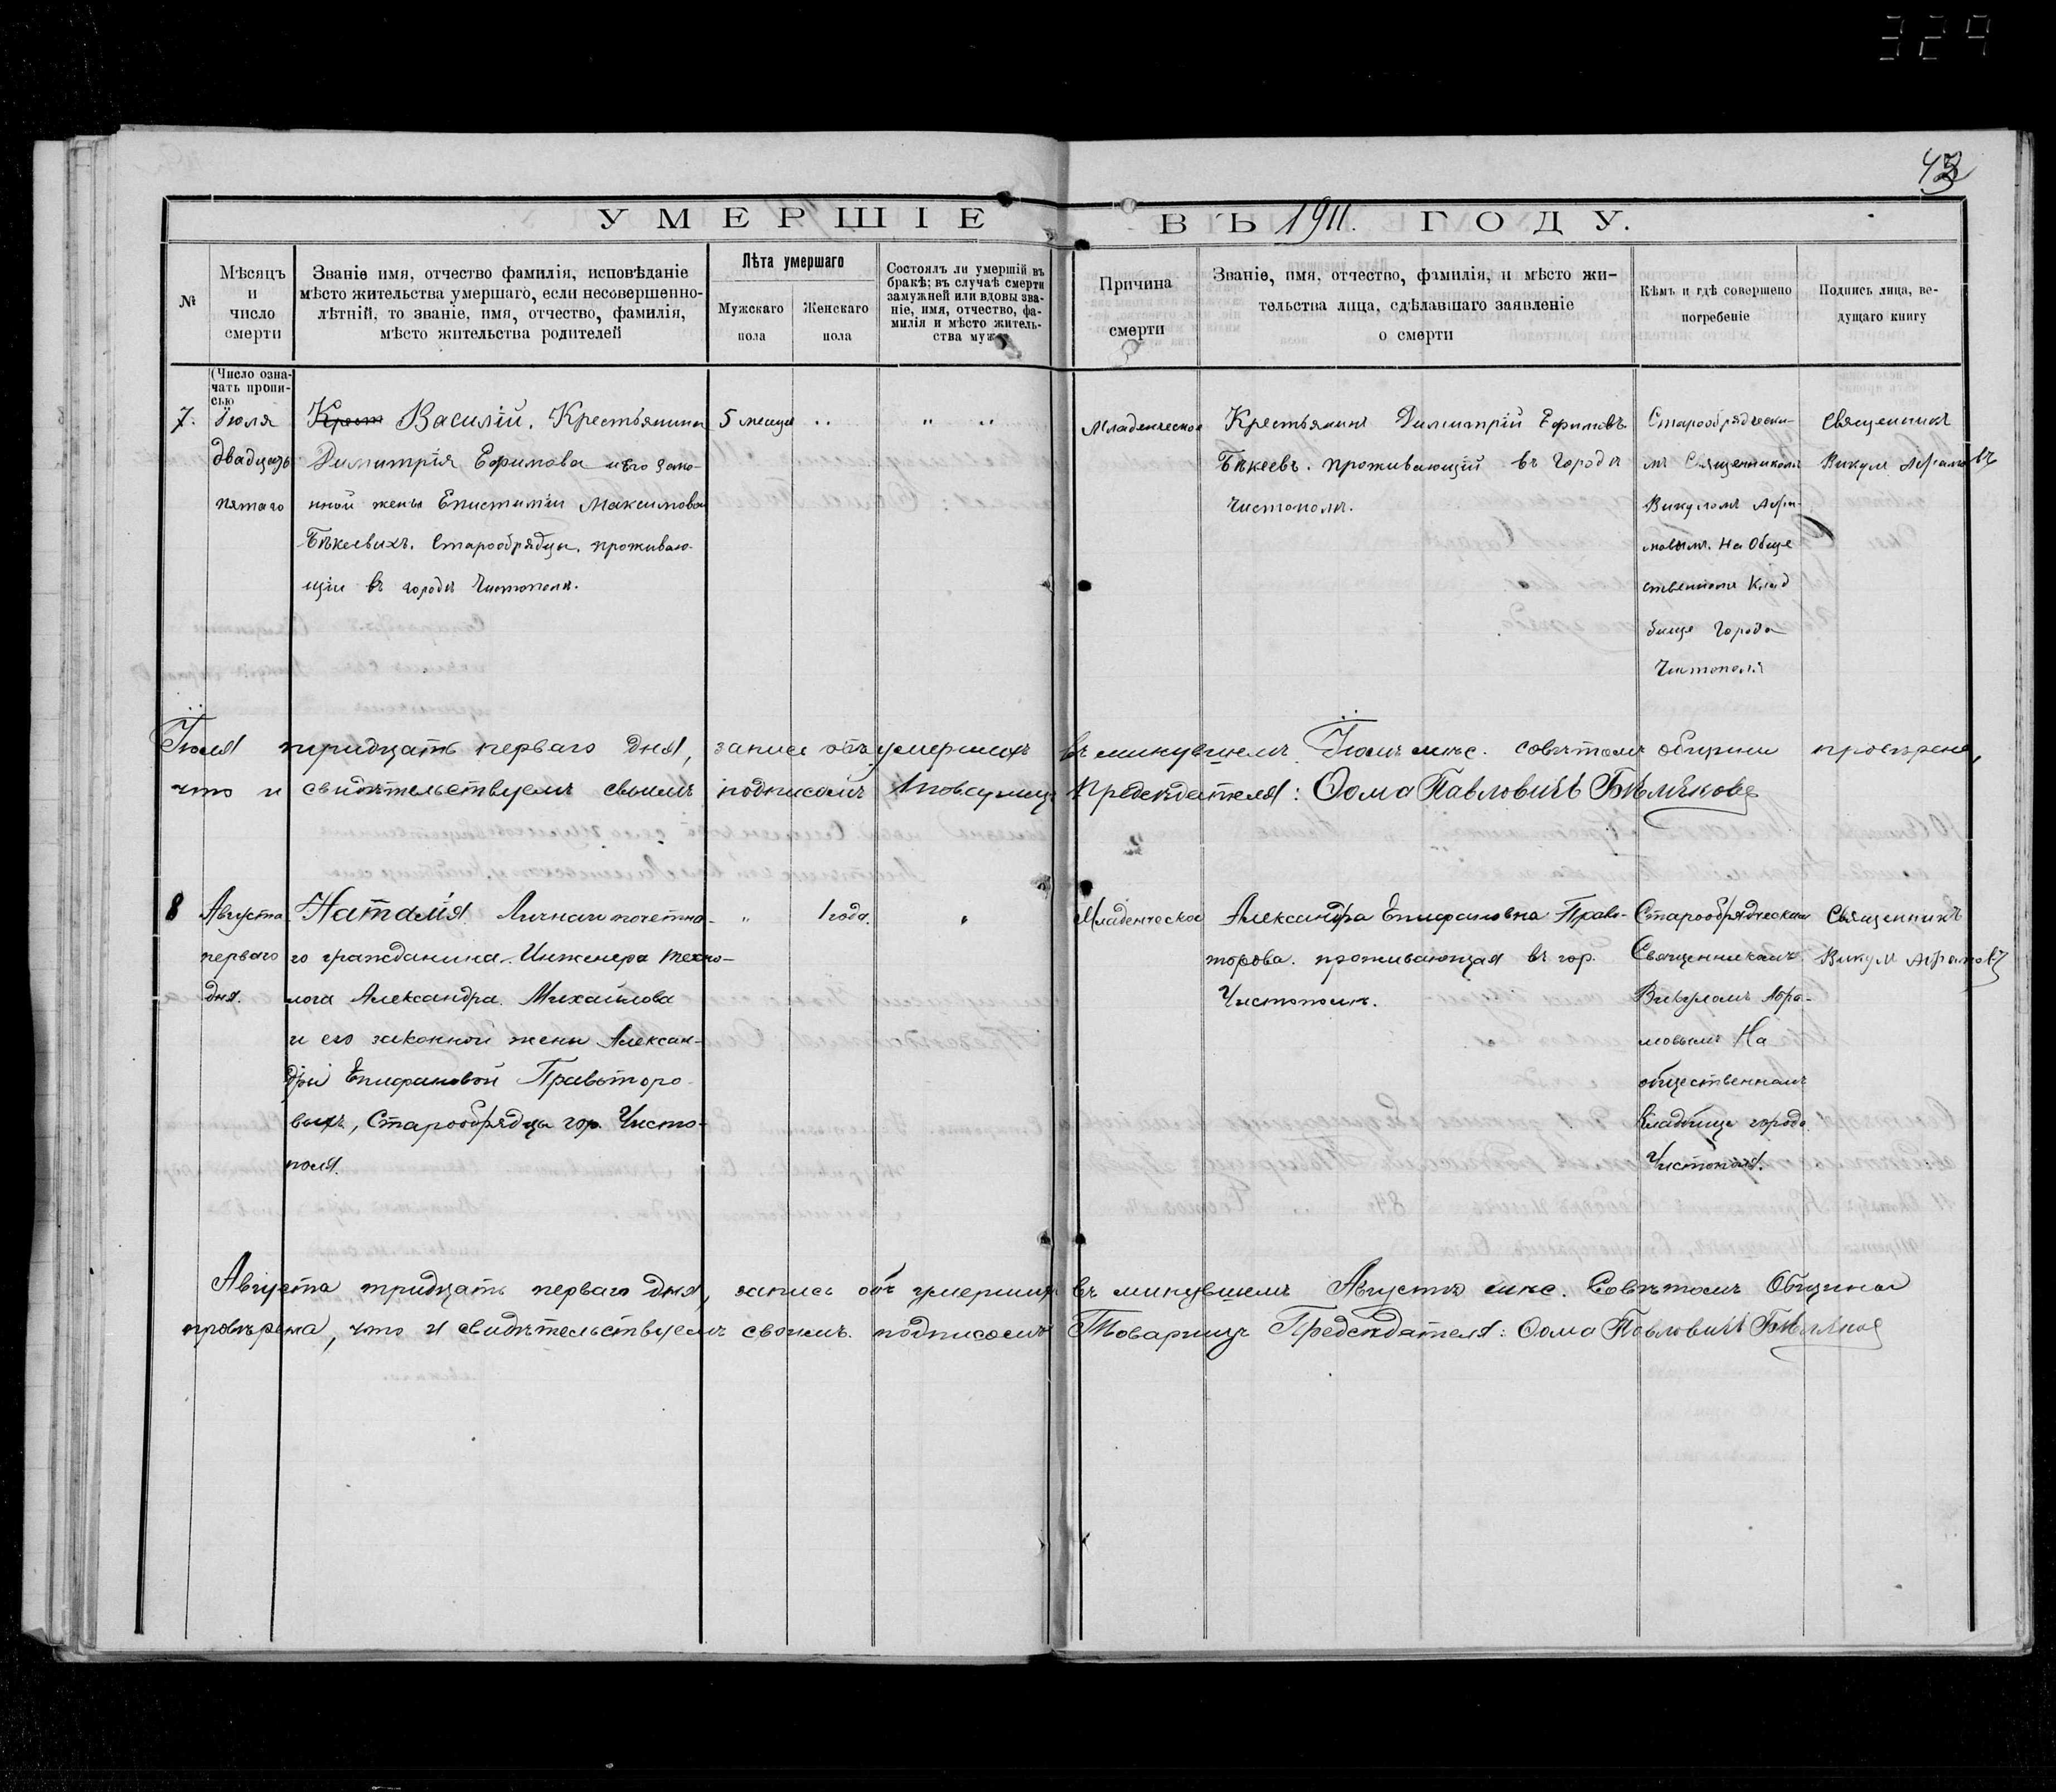 329
43
УМЕРШІЕ ВЪ 1911. ГОДУ.
№
Мѣсяцъ
и
число
смерти
Званіе имя, отчество фамилія, исповѣданіе
мѣсто жительства умершаго, если несовершенно-
лѣтній, то званіе, имя, отчество, фамилія,
мѣсто жительства родителей
Лѣта умершаго
Мужскаго
пола
Женскаго
пола
Состоялъ ли умершій въ
бракѣ; въ случаѣ смерти
замужней или вдовы зва-
ніе, имя, отчество, фа-
милія и мѣсто житель-
ства мужа
Причина
смерти
Званіе, имя, отчество, фамилія, и мѣсто жи-
тельства лица, сдѣлавшаго заявленіе
о смерти
Кѣмъ и гдѣ совершено
погребеніе
Подпись лица, ве-
дущаго книгу
(Число озна-
чать пропи-
сью
7.
Іюля
двадцать
пятаго
Крест Василій. Крестьянина
Димитрія Ефимова и его зако-
нной жены Епистиміи Максимовой
Бѣкеевыхъ. Старообрядцы. проживаю-
щіи въ городѣ Чистополѣ.
5 месяца
Младенческое
Крестьянинъ Димитрій Ефимовъ
Бѣкеевъ. проживающій въ городѣ
Чистополѣ.
Старообрядчески-
мъ Священникомъ
Викуломъ Абра-
мовымъ. На Обще
ственномъ Клад
бище Города
Чистополя
Священникъ
Викул Абрамовъ
Іюля тридцать перваго дня, запись объ умершихъ въ минувшемъ Іюлѣ мѣс. совѣтомъ общины провѣрена,
что и свидѣтельствуемъ своимъ подписомъ Товарищъ Предсѣдателя: Ѳома Павловичъ Бѣляковъ
8
Августа
перваго
дня.
Наталія Личнаго почетна-
го гражданина. Инженера техно-
лога Александра. Михайлова
и его законной жены Алексан-
дры Епифановой Правоторо-
выхъ, Старообрядцы гор. Чисто-
поля.
1 года.
Младенческое
Александра Епифановна Право-
торова. проживающая въ гор.
Чистополѣ.
Старообрядческим
Священникомъ
Викуломъ Абра-
мовымъ На
общественномъ
Кладбище города
Чистополя.
Священникъ
Викул Абрамовъ
Августа тридцать перваго дня, запись объ умершихъ въ минувшемъ Августѣ мѣс. Совѣтомъ Общины
провѣрена, что и свидѣтельствуемъ своимъ. подписомъ Товарищъ Предсѣдателя: Ѳома Павловичъ Бѣляковъ